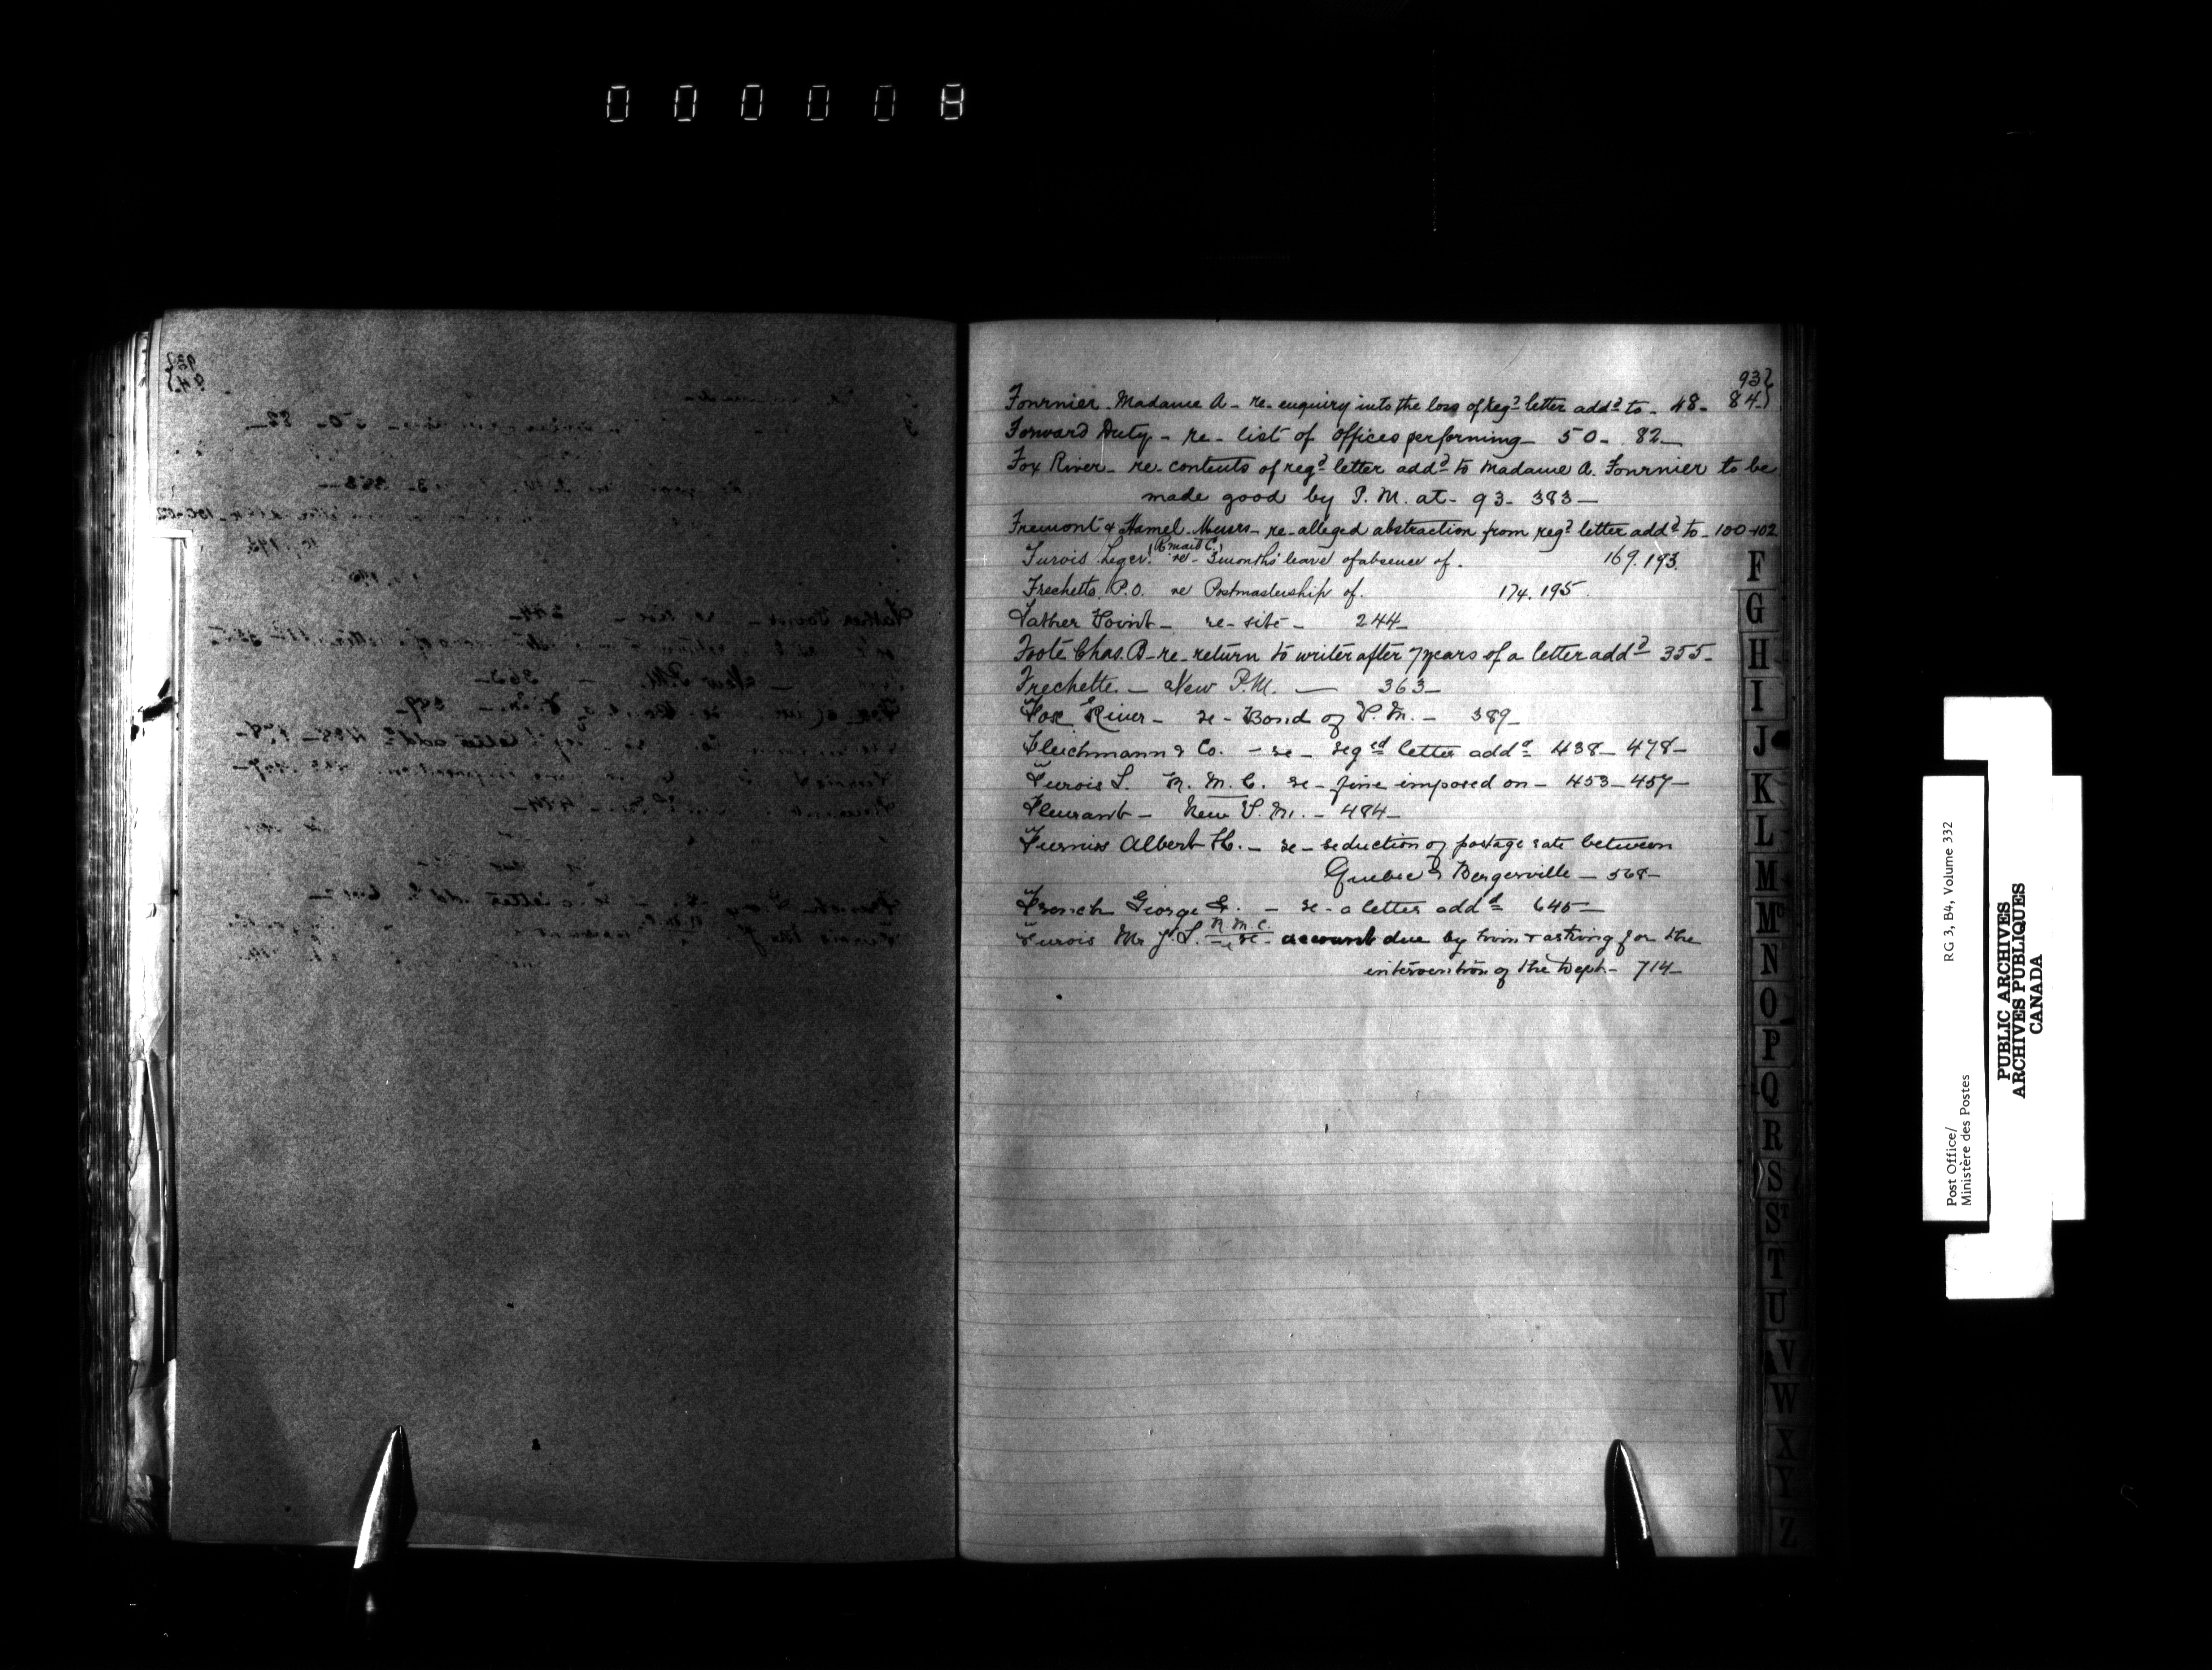 000008
93
Fournier Madame A - re enquiry into the loss of reg.d letter add.d to - 48 - 84
Forward Duty - re - list of offices performing - 50 - 82 -
Fox River - re contents of reg.d letter add.d to Madame A. Fournier to be
made good by P. M. at - 93 - 383 -
Fremont & Hamel Messrs - re alleged abstraction from reg.d letter add.d to - 100-102
(R mail C.)
Furois Leger re - 3 months' leave of absence of. 169. 193.
Frechette P.O. re Postmastership of. 174. 195.
Father Point - re - site - 244 -
Foote Chas. B - re - return to writer after 7 years of a letter add.d 355 -
Frechette - New P.M. - 363 -
Fox River - re - Bond of P. M. - 389 -
Fleichmann & Co. - re - reg.ed letter add.d 438 - 478 -
Furois L. R. M. C. re - fine imposed on - 453 - 457 -
Fleurant - New P. M. - 484 -
Furniss Albert H. - re - reduction of postage rate between
Quebec & Bergerville - 568 -
French George - re - a letter add.d 645 -
R M C.
Furois Mr J. L. - re - account due by him & asking for the
intervention of the Dept - 714 -
F
G
H
I
J
K
L
M
Mc
N
O
P
Q
R
S
ST
T
U
V
W
X
Y
Z
Post Office/ RG 3, B4, Volume 332
Ministère des Postes
PUBLIC ARCHIVES
ARCHIVES PUBLIQUES
CANADA